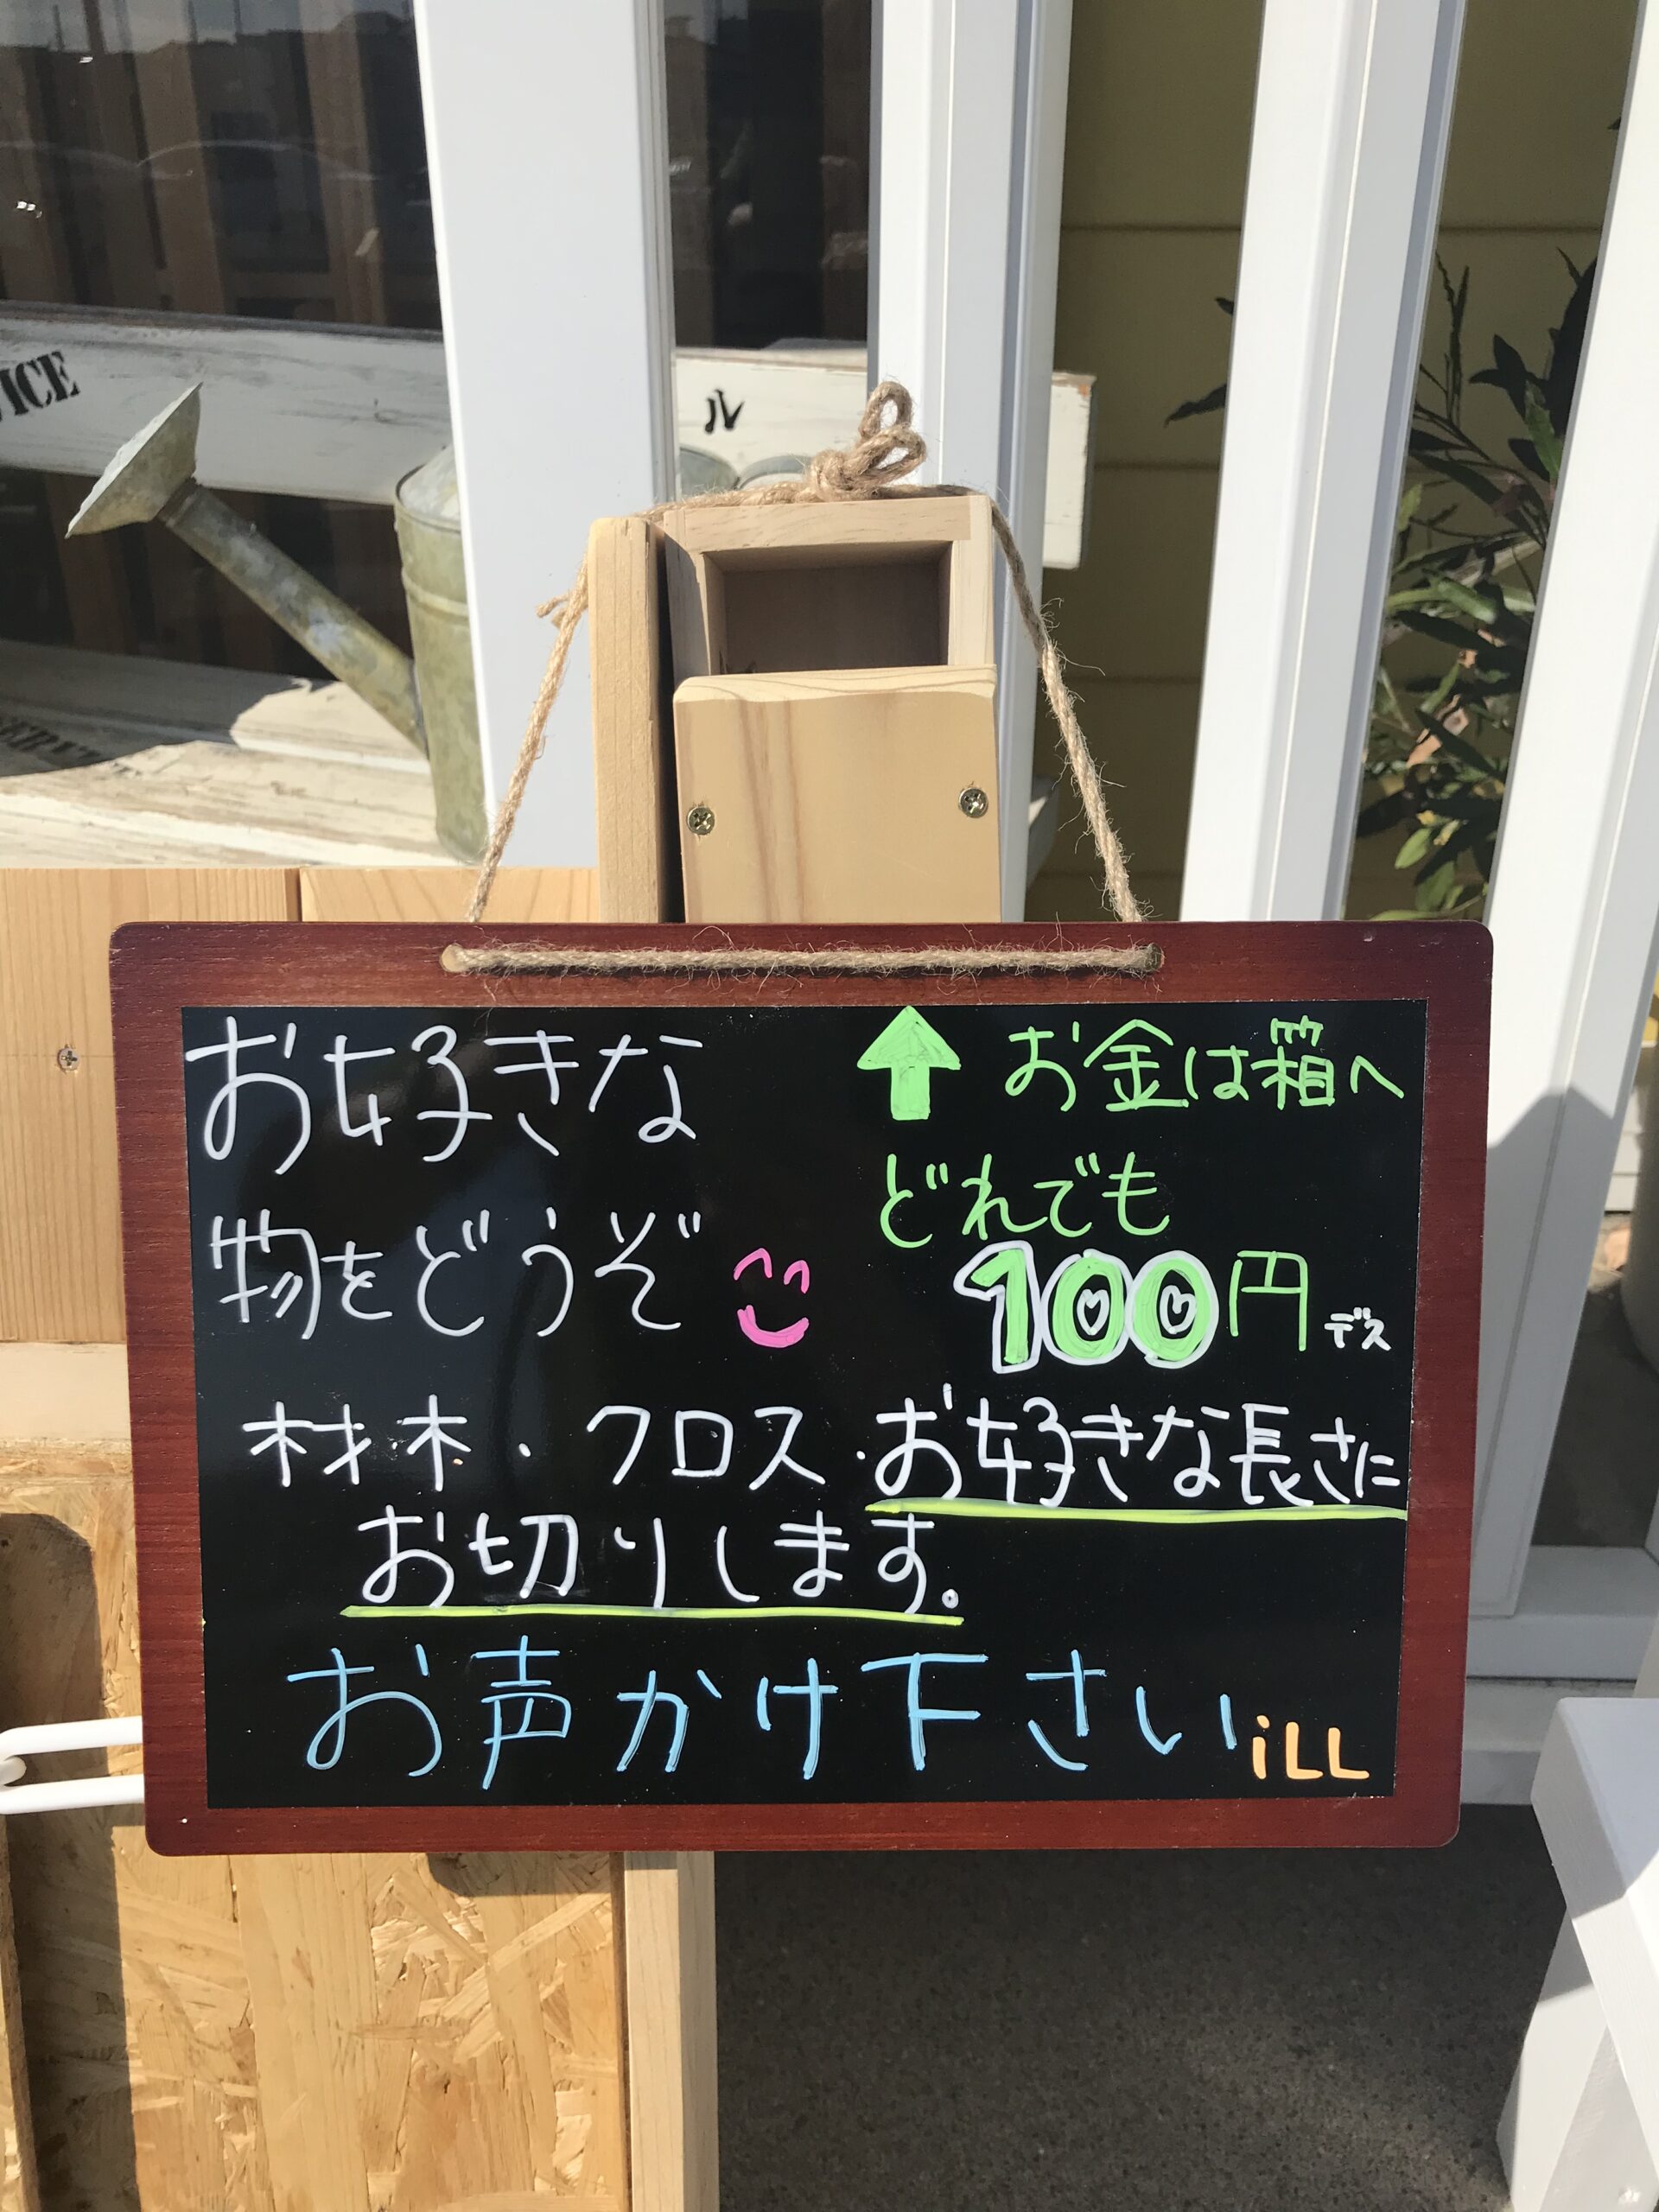 お好きな
物をどうぞ
お金は箱へ
どれでも
100円デス
材木・クロス・お好きな長さに
お切りします。
お声かけ下さい
iLL
ICE
ル